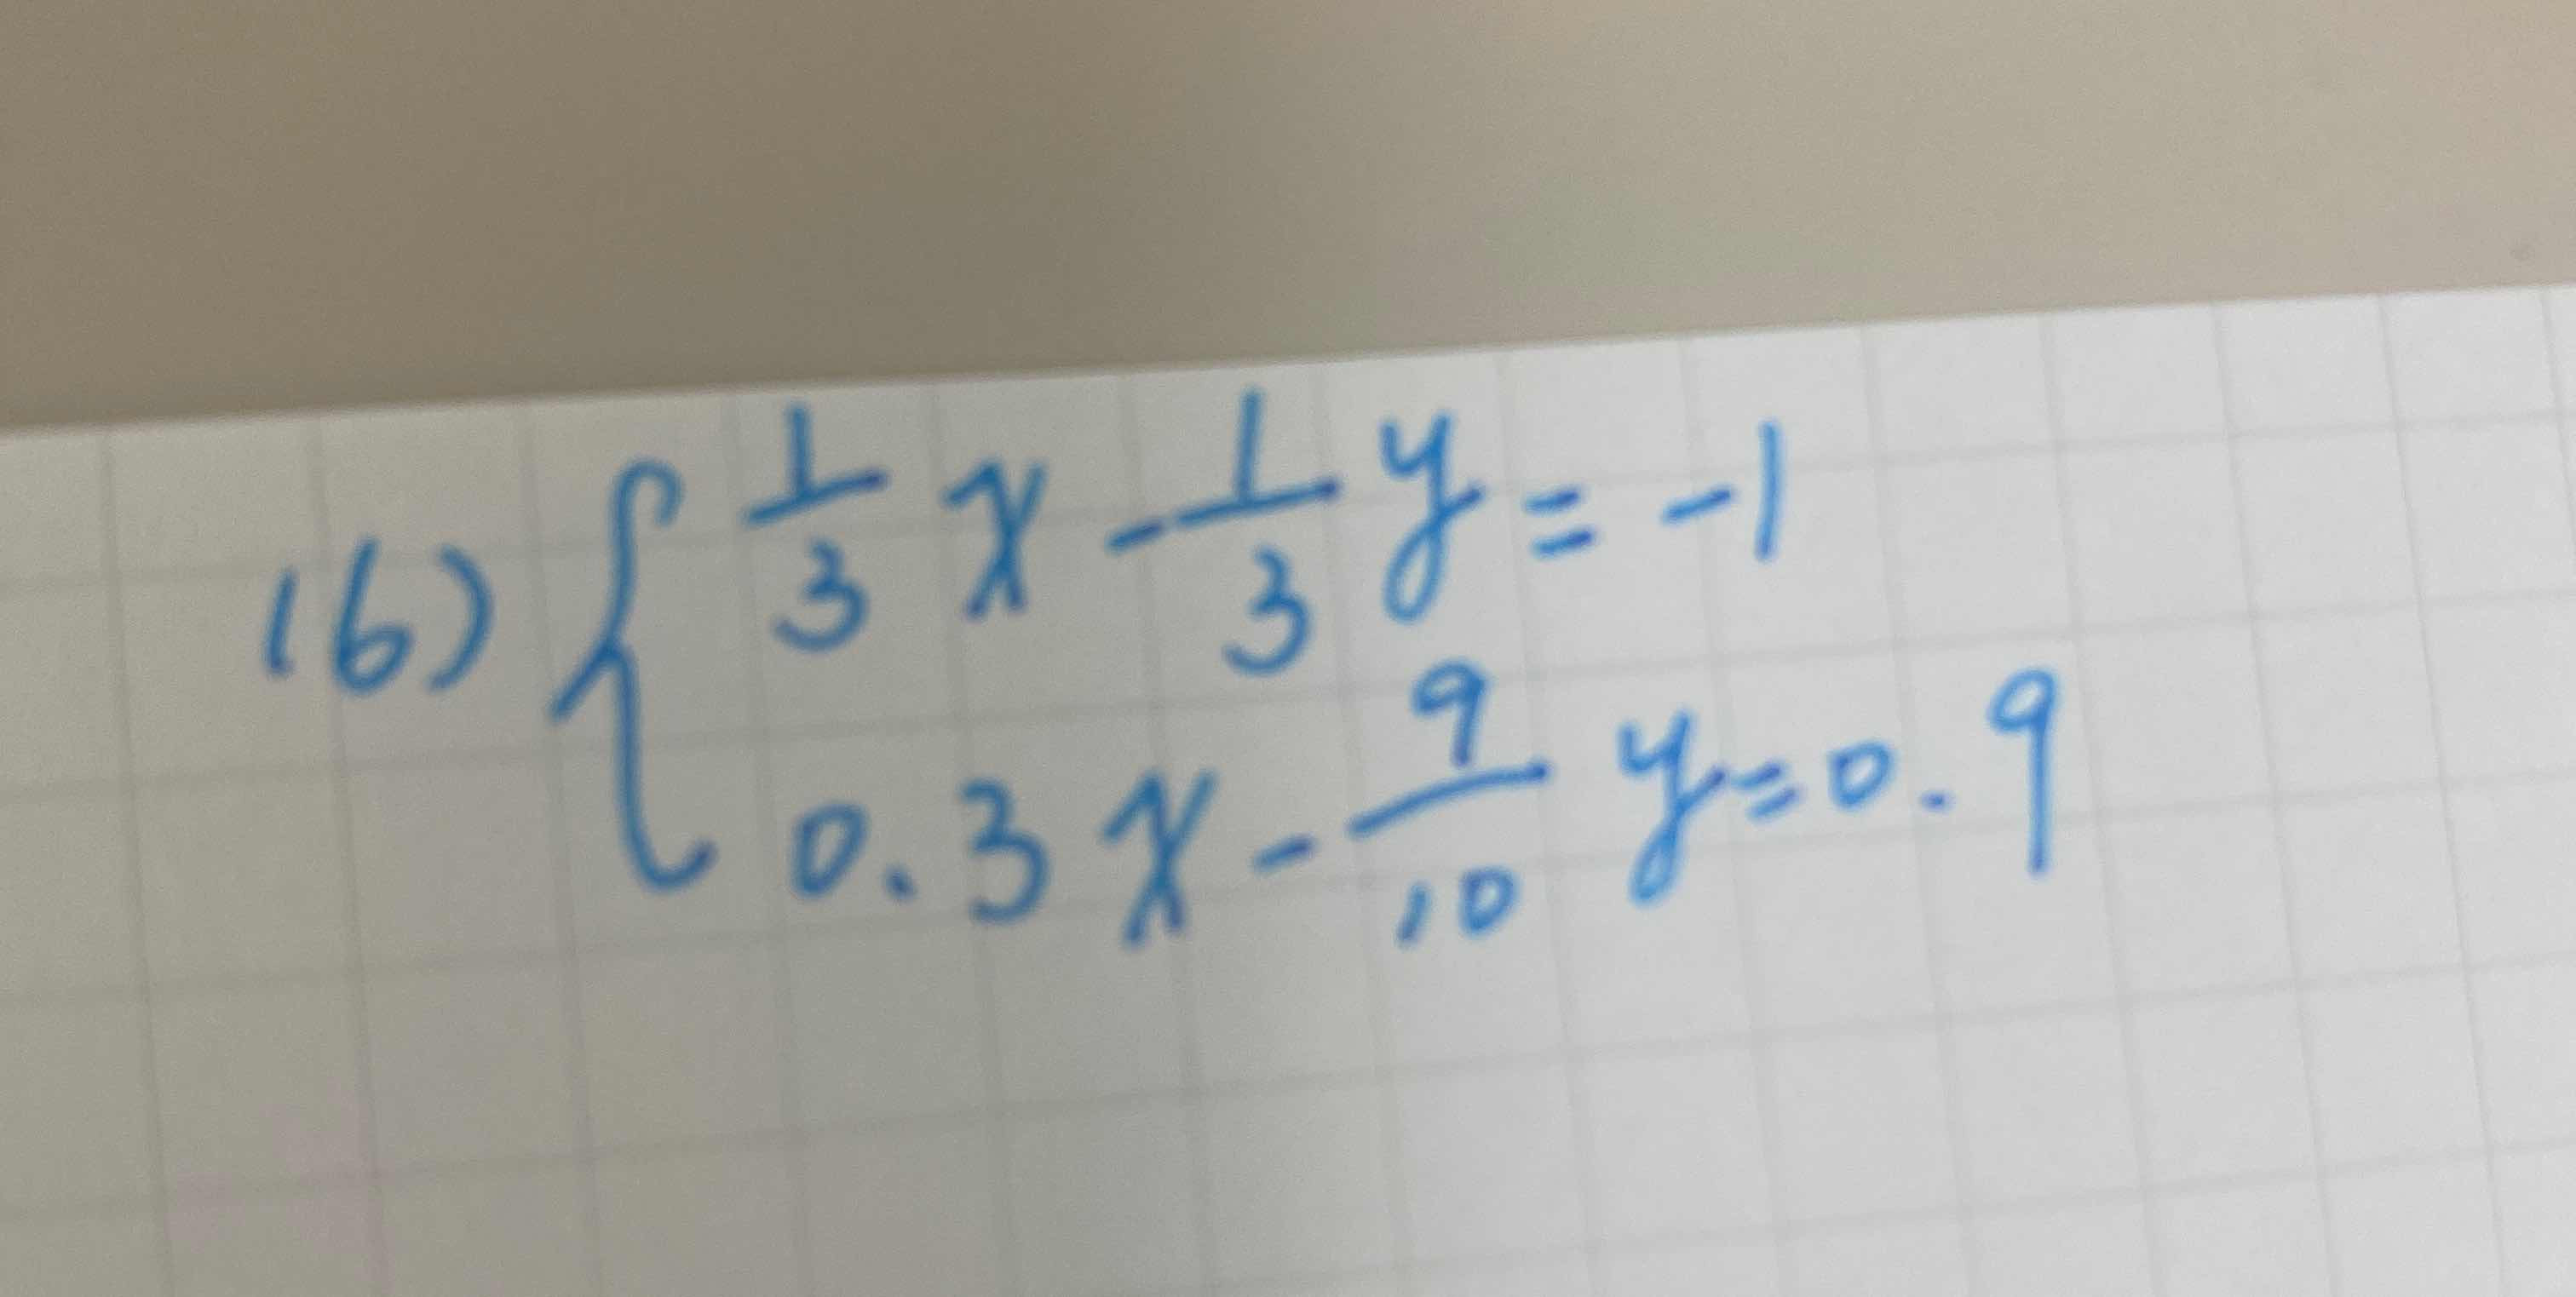 16) { 1/3 x - 1/3 y = -1
0.3x - 9/10 y = 0.9